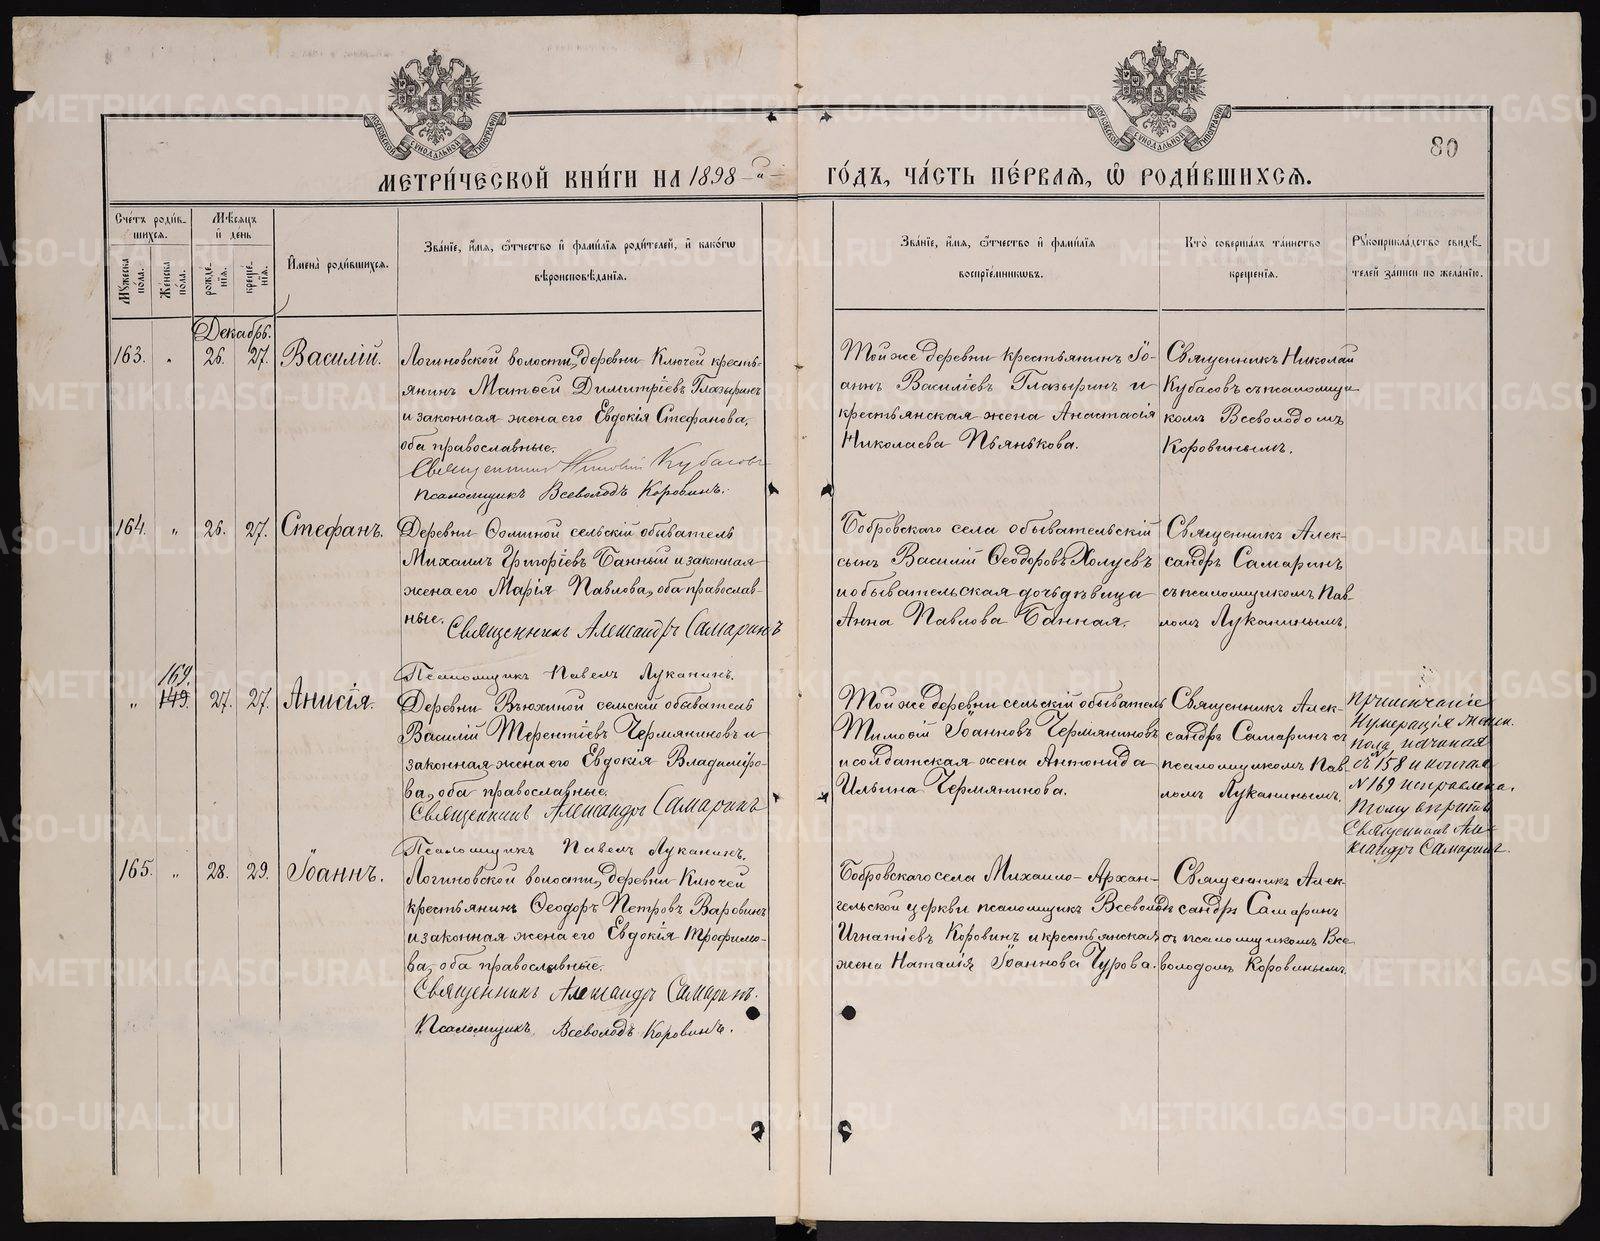 МЕТРИЧЕСКОЙ КНИГИ НА 1898-й ГОДЪ, ЧАСТЬ ПЕРВАЯ, Ѿ РОДИВШИХСЯ.
80
Счетъ родив-
шихся.
Мѣсяцъ
и день
Мужеска
пола.
Женска
пола.
рожде-
нія.
креще-
нія.
Имена родившихся.
Званіе, имя, отчество и фамилія родителей, и какогѡ
вѣроисповѣданія.
Званіе, имя, отчество и фамилія
воспріемникѡвъ.
Кто совершалъ таинство
крещенія.
Рукоприкладство свидѣ-
телей записи по желанію.
Декабрь.
163. „ 26. 27. Василій.
Логиновской волости, деревни Ключей кресть-
янинъ Матѳей Димитріевъ Глазыринъ
и законная жена его Евдокія Стефанова,
оба православные.
Священникъ Николай Кубасовъ
псаломщикъ Всеволодъ Коровинъ.
Той же деревни крестьянинъ Іо-
аннъ Василіевъ Глазыринъ и
крестьянская жена Анастасія
Николаева Пьянькова.
Священникъ Николай
Кубасовъ съ псаломщи-
комъ Всеволодомъ
Коровинымъ.
164. „ 26. 27. Стефанъ.
Деревни сельскій обыватель
Михаилъ Григоріевъ Банный и законная
жена его Марія Павлова, оба православ-
ные.
Священникъ Александръ Самаринъ
Псаломщикъ Павелъ Луканинъ.
Бобровскаго села обывательскій
сынъ Василій Ѳеодоровъ Холуевъ
и обывательская дочь дѣвица
Анна Павлова Банная.
Священникъ Алек-
сандръ Самаринъ
съ псаломщикомъ Пав-
ломъ Луканинымъ.
169.
„ 149. 27. 27. Анисія.
Деревни Вьюхиной сельскій обыватель
Василій Терентіевъ Чермяниновъ и
законная жена его Евдокія Владиміро-
ва, оба православные.
Священникъ Александръ Самаринъ
Псаломщикъ Павелъ Луканинъ.
Той же деревни сельскій обыватель
Тимоѳій Іоанновъ Чермяниновъ
и солдатская жена Антонида
Ильина Чермянинова.
Священникъ Алек-
сандръ Самаринъ съ
псаломщикомъ Пав-
ломъ Луканинымъ.
Примѣчаніе
Нумерація женск.
пола, начиная
съ 158 и кончая
№ 169 исправлена.
Тому вѣрить
Священникъ Але-
ксандръ Самаринъ.
165. „ 28. 29. Іоаннъ.
Логиновской волости, деревни Ключей
крестьянинъ Ѳеодоръ Петровъ Варовинъ
и законная жена его Евдокія Трофимо-
ва, оба православные.
Священникъ Александръ Самаринъ.
Псаломщикъ Всеволодъ Коровинъ.
Бобровскаго села Михаило-Архан-
гельской церкви псаломщикъ Всеволодъ
Игнатіевъ Коровинъ и крестьянская
жена Наталія Іоаннова Чурова.
Священникъ Алек-
сандръ Самаринъ
съ псаломщикомъ Все-
володомъ Коровинымъ.
METRIKI.GASO-URAL.RU